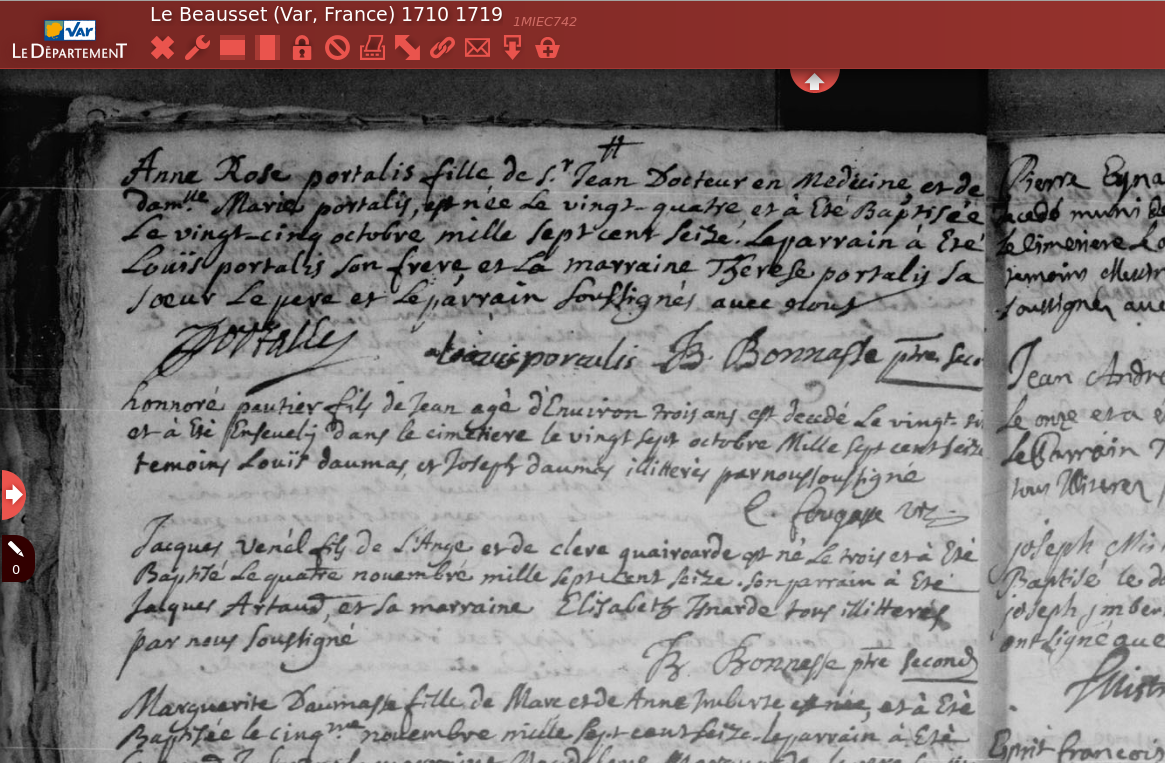 Le Beausset (Var, France) 1710 1719 1MIEC742
VAR
LE DÉPARTEMENT
Anne Rose portalis fille de S.r Jean Docteur en Medecine et de
dam.lle Marie portalis, est née Le vingt-quatre et à Eté Baptisée
Le vingt-cinq octobre mille sept cent seize. Le parrain à Eté
Louïs portalis son frere et La marraine Therese portalis sa
soeur Le pere et Le parrain soussignés avec nous
Portalis Louis portalis B. Bonnasse ptre seco
honnoré pautier fils de Jean agé d'Environ trois ans est decedé Le vingt-
et à Eté Enseveli dans le cimetiere le vingt sept octobre Mille sept cent seize
temoins Louïs daumas, et Joseph daumas illitterés par nous soussigné
fougasse
Jacques Venel fils de L'Ange et de cleve quairoarde est né Le trois et à Eté
Baptisé Le quatre novembre mille sept cent seize. son parrain à Eté
Jaques Artaud, et sa marraine Elisabeth Imarde tous illitteres
par nous soussigné
B. Bonnasse ptre second
Marguerite Daumasse fille de Marc et de Anne Imberte est née, et à Eté
Baptisée le cinq.me novembre mille sept cent seize. le parrain à Eté
Pierre
Jean André
le onze et a
Le Parrain
joseph
Baptisé le
joseph imber
ont signé que
Esprit francois
0